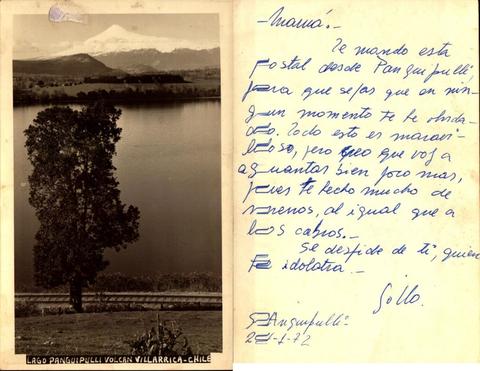 LAGO PANGUIPULLI VOLCAN VILLARRICA-CHILE
-Mamá.-
Te mando esta
postal desde Panguipulli,
para que sepas que en nin-
gun momento te he olvida-
do. Todo esto es maravi-
lloso, pero creo que voy a
aguantar bien poco mas,
pues te hecho mucho de
menos, al igual que a
los cabros.-
Se despide de ti, quien
te idolatra.-
Panguipulli-